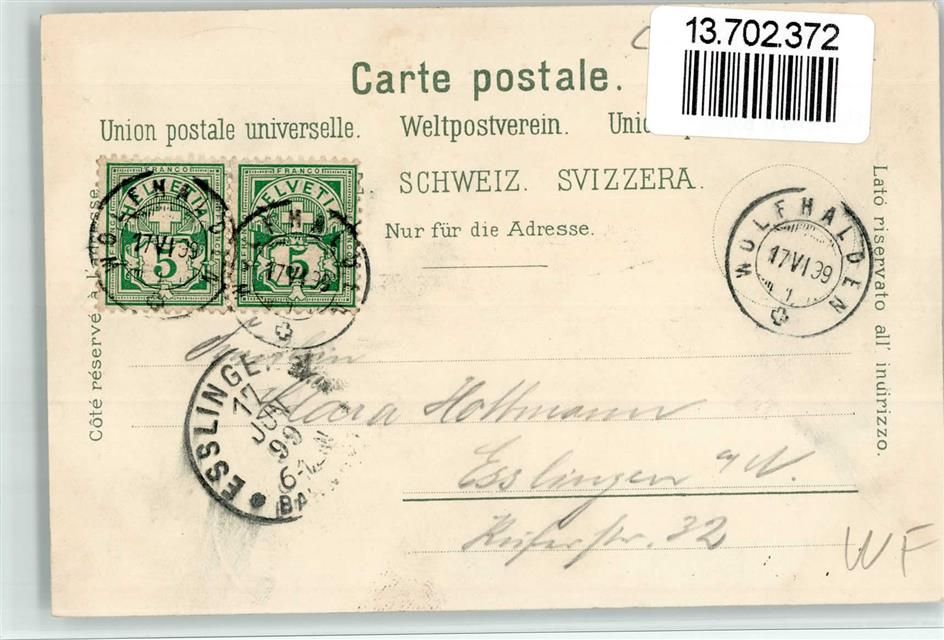 13.702.372
Carte postale.
Union postale universelle. Weltpostverein.
SCHWEIZ. SVIZZERA.
Nur für die Adresse.
Côté réservé à l'adresse.
Lato riservato all' indirizzo.
FRANCO
HELVETIA
5
FRANCO
HELVETIA
5
WOLFHALDEN
17 VI 99
WOLFHALDEN
17 VI 99
WOLFHALDEN
17 VI 99
1
ESSLINGEN
17
JUN
99
Fräulein
Klara Hottmann
Esslingen a/N.
32
WF